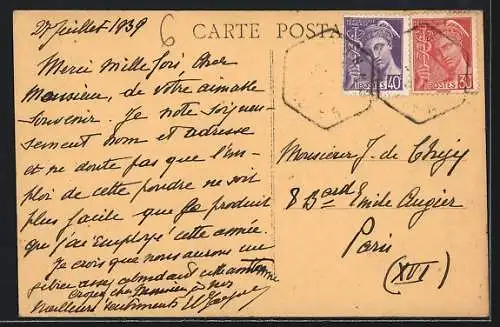 27 Juillet 1939
6
CARTE POSTA
Merci mille fois cher
Monsieur, de votre aimable
souvenir. Je note soigneu-
sement nom et adresse
et ne doute pas que l'em-
ploi de cette poudre ne soit
plus facile que le produit
que j'ai employé cette année.
Je crois que nous aurons un
gibier assez abondant cette automne
Croyez cher Monsieur à mes
meilleurs sentiments
40
POSTES
30
POSTES
Monsieur J. de
8 Bard Emile Augier
Paris
(XVI)